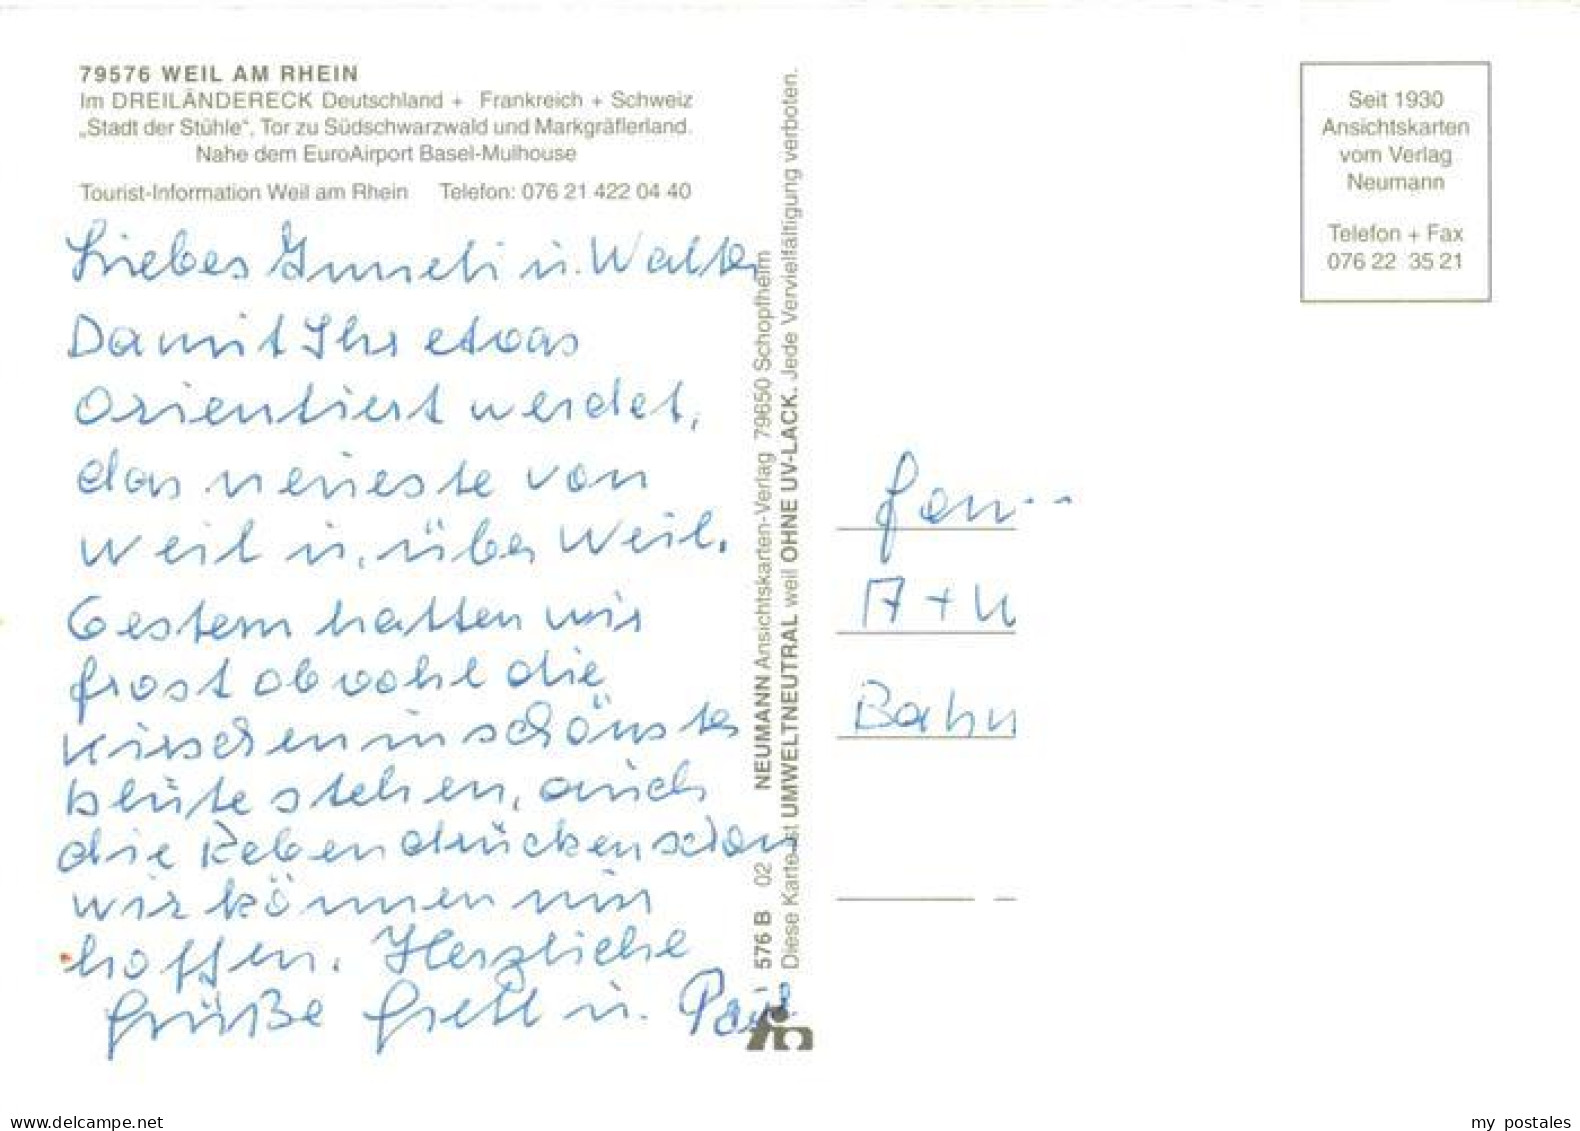 79576 WEIL AM RHEIN
Im DREILÄNDERECK Deutschland + Frankreich + Schweiz
„Stadt der Stühle“, Tor zu Südschwarzwald und Markgräflerland.
Nahe dem EuroAirport Basel-Mulhouse
Tourist-Information Weil am Rhein Telefon: 076 21 422 04 40
Liebes u. Walter
Damit Ihr etwas
Orientiert werdet,
das neueste von
Weil u. über Weil.
Gestern hatten wir
frost obwohl die
Kirschen in schönster
blüte stehen, auch
die Reben drücken schon
wir können nur
hoffen. Herzliche
Grüße Gretl u. Paul
576 B 02 NEUMANN Ansichtskarten-Verlag 79650 Schopfheim
Diese Karte ist UMWELTNEUTRAL weil OHNE UV-LACK. Jede Vervielfältigung verboten.
Seit 1930
Ansichtskarten
vom Verlag
Neumann
Telefon + Fax
076 22 35 21
Fam
Bahn
www.oldthing.net
my postales